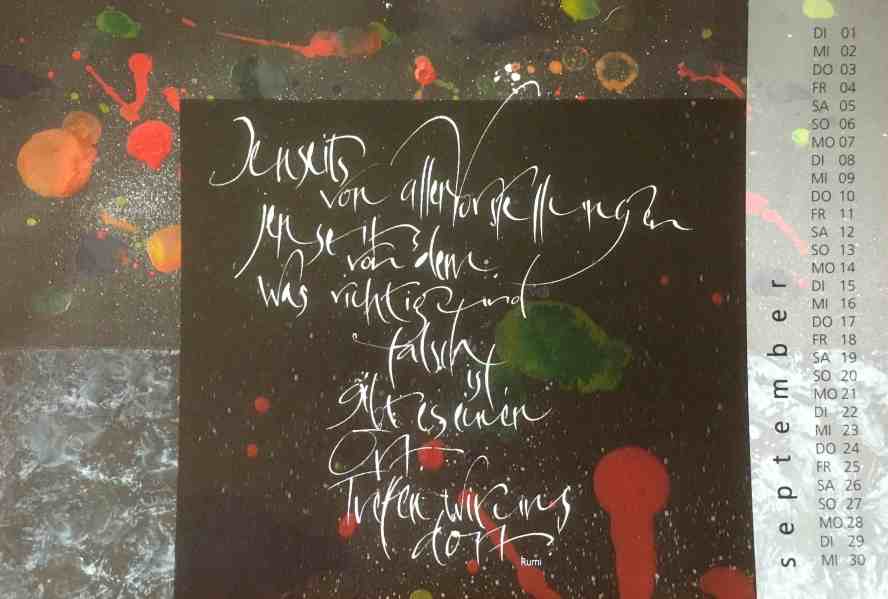 Jenseits
von allen Vorstellungen
jenseits
von dem
was richtig und
falsch
ist
gibt es einen
Ort
Treffen wir uns
dort
Rumi
september
DI 01
MI 02
DO 03
FR 04
SA 05
SO 06
MO 07
DI 08
MI 09
DO 10
FR 11
SA 12
SO 13
MO 14
DI 15
MI 16
DO 17
FR 18
SA 19
SO 20
MO 21
DI 22
MI 23
DO 24
FR 25
SA 26
SO 27
MO 28
DI 29
MI 30